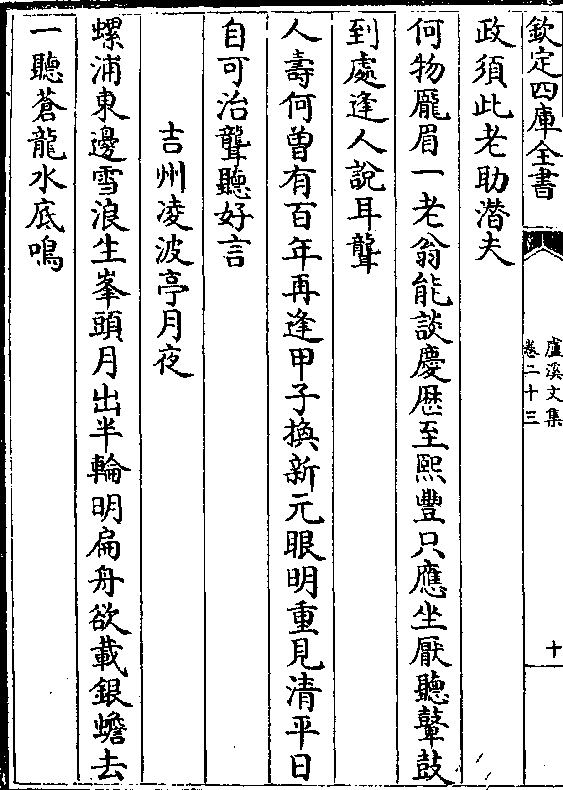 欽定四庫全書
盧溪文集
卷二十三
十
政須此老助潛夫
何物厖眉一老翁能談慶厯至熙豐只應坐厭聽鼙鼓
到處逢人說耳聾
人壽何曽有百年再逢甲子換新元眼明重見清平日
自可治聾聽好言
吉州凌波亭月夜
螺浦東邊雪浪生峯頭月出半輪明扁舟欲載銀蟾去
一聽蒼龍水底鳴